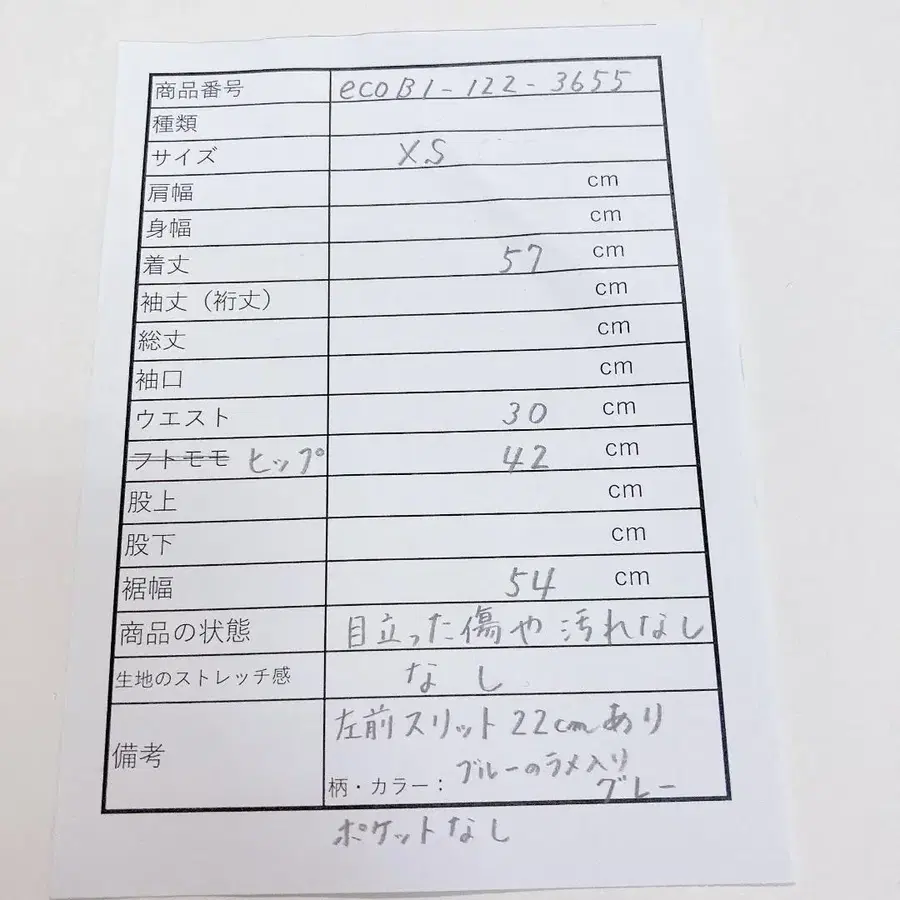 商品番号 ecoB1-122-3655
種類
サイズ XS
肩幅 cm
身幅 cm
着丈 57 cm
袖丈（裄丈） cm
総丈 cm
袖口 cm
ウエスト 30 cm
フトモモ ヒップ 42 cm
股上 cm
股下 cm
裾幅 54 cm
商品の状態 目立った傷や汚れなし
生地のストレッチ感 なし
備考 左前スリット22cmあり
柄・カラー： ブルーのラメ入り
グレー
ポケットなし